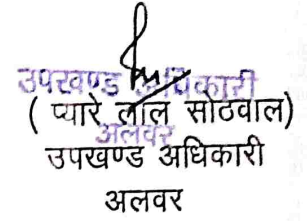 उपखण्ड अधिकारी
( प्यारे लाल सोठवाल)
अलवर
उपखण्ड अधिकारी
अलवर